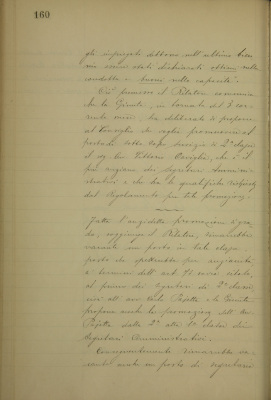 160
gli impiegati debbono nell'ultimo trien
nio essere stati dichiarati ottimi nella
condotta e buoni nella capacità.
Ciò premesso il Relatore comunica
che la Giunta, in tornata del 3 cor
rente mese, ha deliberato di proporre
al Consiglio che voglia promuovere al
posto di sotto Capo Servizio di 2ª classe
il sig. Vittorio, che è il
più anziano dei segretari Ammini
strativi e che ha le qualifiche richieste
dal Regolamento per tale promozione.
Fatta l'anzidetta promozione di gra
do, soggiunge il Relatore, rimarrebbe
vacante un posto in tale classe
posto che spetterebbe per anzianità
a termini dell'art. 71 sovra citato,
al primo dei segretari di 2ª classe,
cioè all'avv. e la Giunta
propone anche la promozione dell'avv.
dalla 2ª alla 1ª classe dei
segretari Amministrativi.
Conseguentemente rimarrebbe va
cante anche un posto di segretario